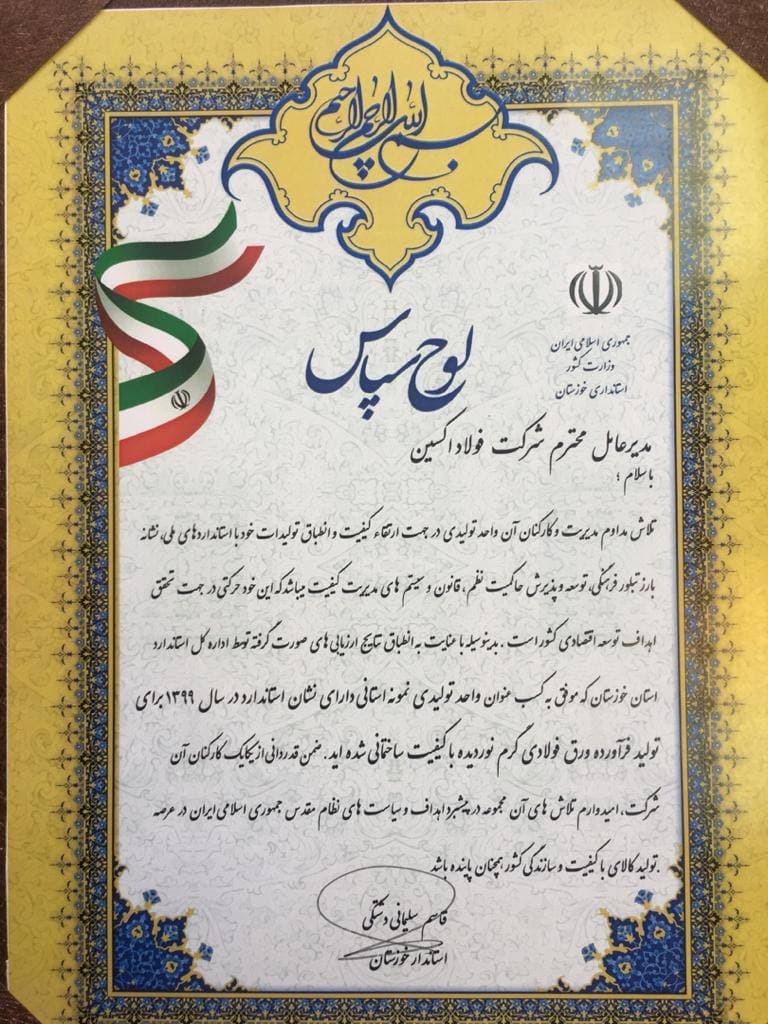 بسم الله الرحمن الرحیم
جمهوری اسلامی ایران
وزارت کشور
استانداری خوزستان
لوح سپاس
مدیرعامل محترم شرکت فولاد اکسین
با سلام ؛
تلاش مداوم مدیریت و کارکنان آن واحد تولیدی در جهت ارتقاء کیفیت و انطباق تولیدات خود با استانداردهای ملی، نشانه
بارز تبلور فرهنگی، توسعه و پذیرش حاکمیت نظم، قانون و سیستم های مدیریت کیفیت میباشد که این خود حرکتی در جهت تحقق
اهداف توسعه اقتصادی کشور است . بدینوسیله با عنایت به انطباق نتایج ارزیابی های صورت گرفته توسط اداره کل استاندارد
استان خوزستان که موفق به کسب عنوان واحد تولیدی نمونه استانی دارای نشان استاندارد در سال ۱۳۹۹ برای
تولید فرآورده ورق فولادی گرم نوردیده با کیفیت ساختمانی شده اید . ضمن قدردانی از یکایک کارکنان آن
شرکت، امیدوارم تلاش های آن مجموعه در پیشبرد اهداف و سیاست های نظام مقدس جمهوری اسلامی ایران در عرصه
تولید کالای با کیفیت و سازندگی کشور همچنان پاینده باشد.
قاسم سلیمانی دشتکی
استاندار خوزستان